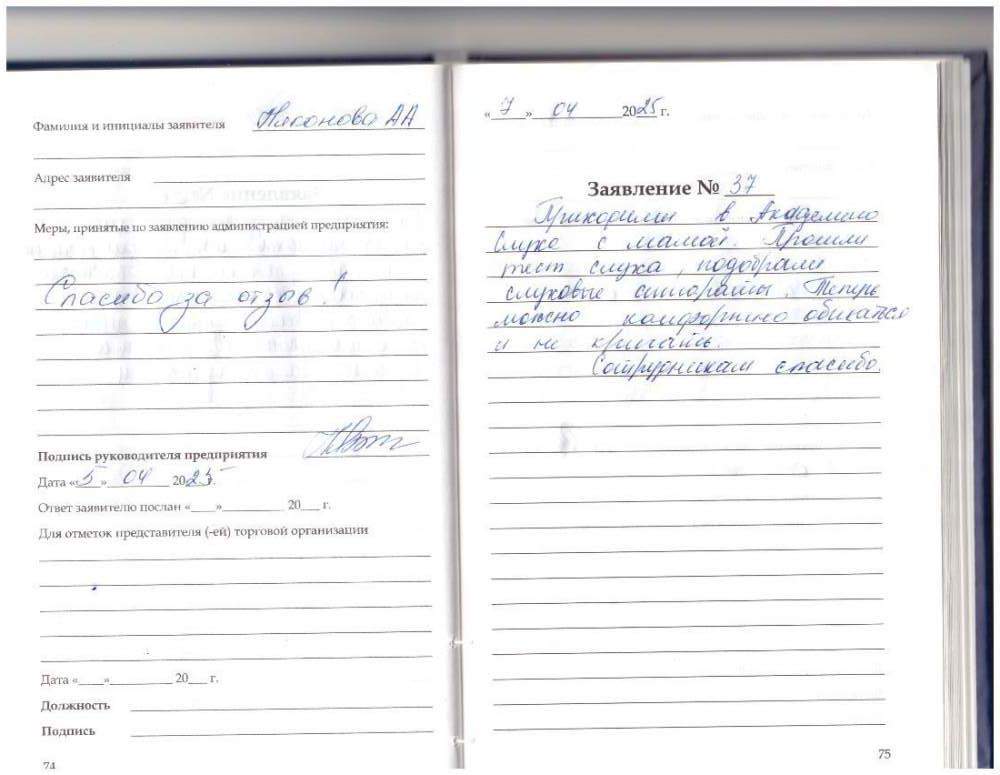 Фамилия и инициалы заявителя Никонова АА
Адрес заявителя
Меры, принятые по заявлению администрацией предприятия:
Спасибо за отзыв!
Подпись руководителя предприятия
Дата «5» 04 2025г.
Ответ заявителю послан «___»__________ 20___ г.
Для отметок представителя (-ей) торговой организации
Дата «____»__________ 20___ г.
Должность
Подпись
74
«7» 04 2025 г.
Заявление № 37
Приходили в Академию
Слуха с мамой. Прошли
тест слуха, подобрали
слуховые аппараты. Теперь
можно комфортно общаться
и не кричать.
Сотрудникам спасибо.
75